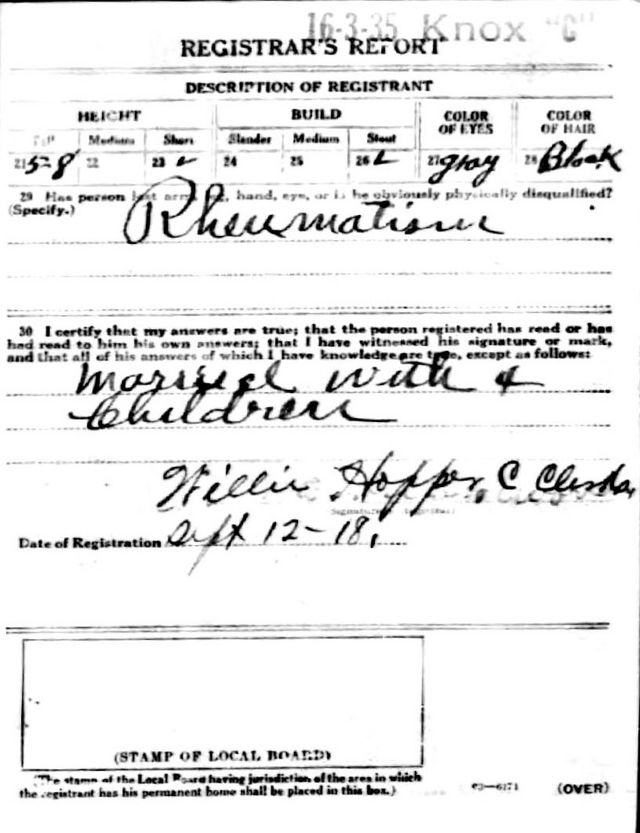 16-3-35 Knox "C"
REGISTRAR'S REPORT
DESCRIPTION OF REGISTRANT
HEIGHT BUILD COLOR OF EYES COLOR OF HAIR
Tall Medium Short Slender Medium Stout
21 5-8 22 23 24 25 26 27 gray 28 Black
29 Has person lost arm, leg, hand, eye, or is he obviously physically disqualified?
(Specify.) Rheumatism
30 I certify that my answers are true; that the person registered has read or has
had read to him his own answers; that I have witnessed his signature or mark,
and that all of his answers of which I have knowledge are true, except as follows:
Married with 4
Children
Willie Hopper, C
Date of Registration Sept 12-18,
(STAMP OF LOCAL BOARD)
(The stamp of the Local Board having jurisdiction of the area in which
the registrant has his permanent home shall be placed in this box.)
03—6171 (OVER)